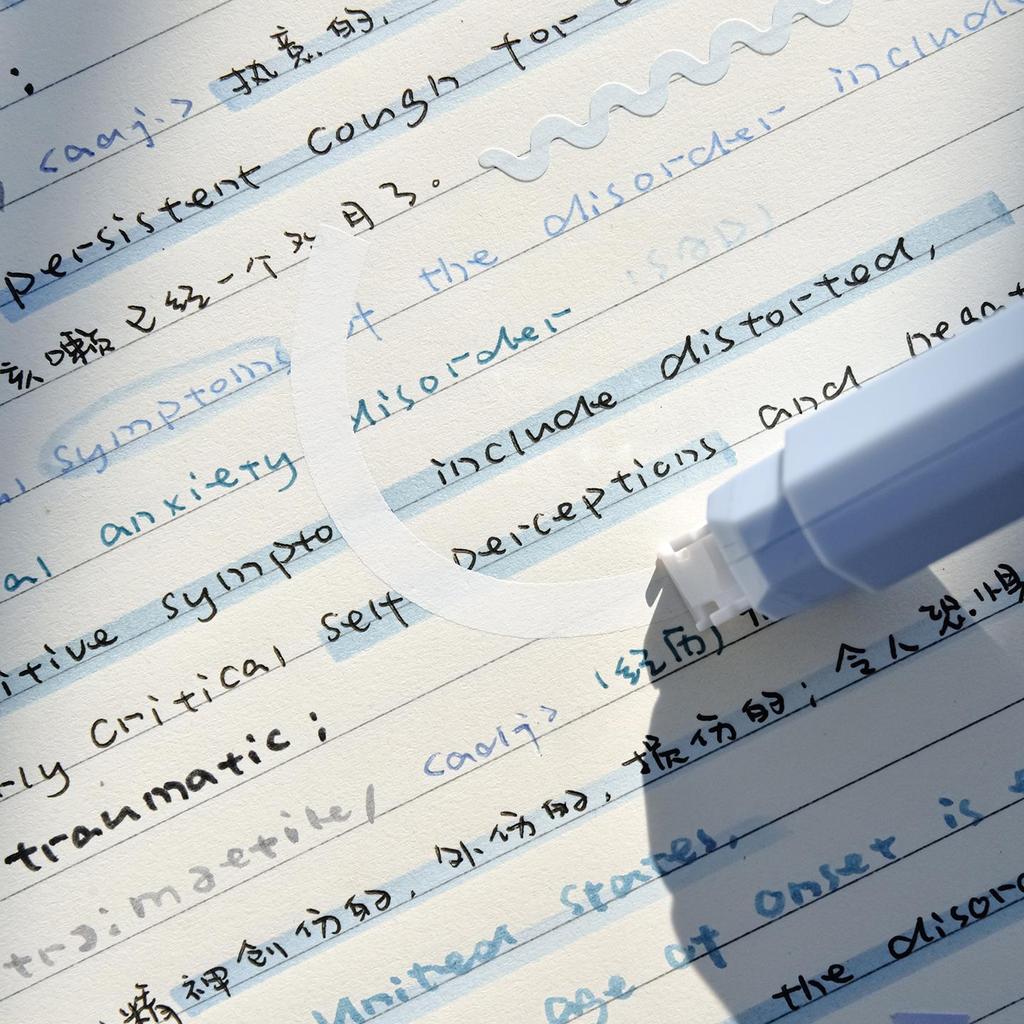 <adj.> 执意的,
persistent cough for
咳嗽已经一个多月了。
symptoms of the disorder includ
al anxiety disorder (SAD)
itive symptoms include distorted,
rly critical self perceptions and near
traumatic; <adj.> (经历)
/trɔːˈmætɪk/
精神创伤的, 外伤的, 损伤的; 令人恐惧
United States,
age at onset is
the disor